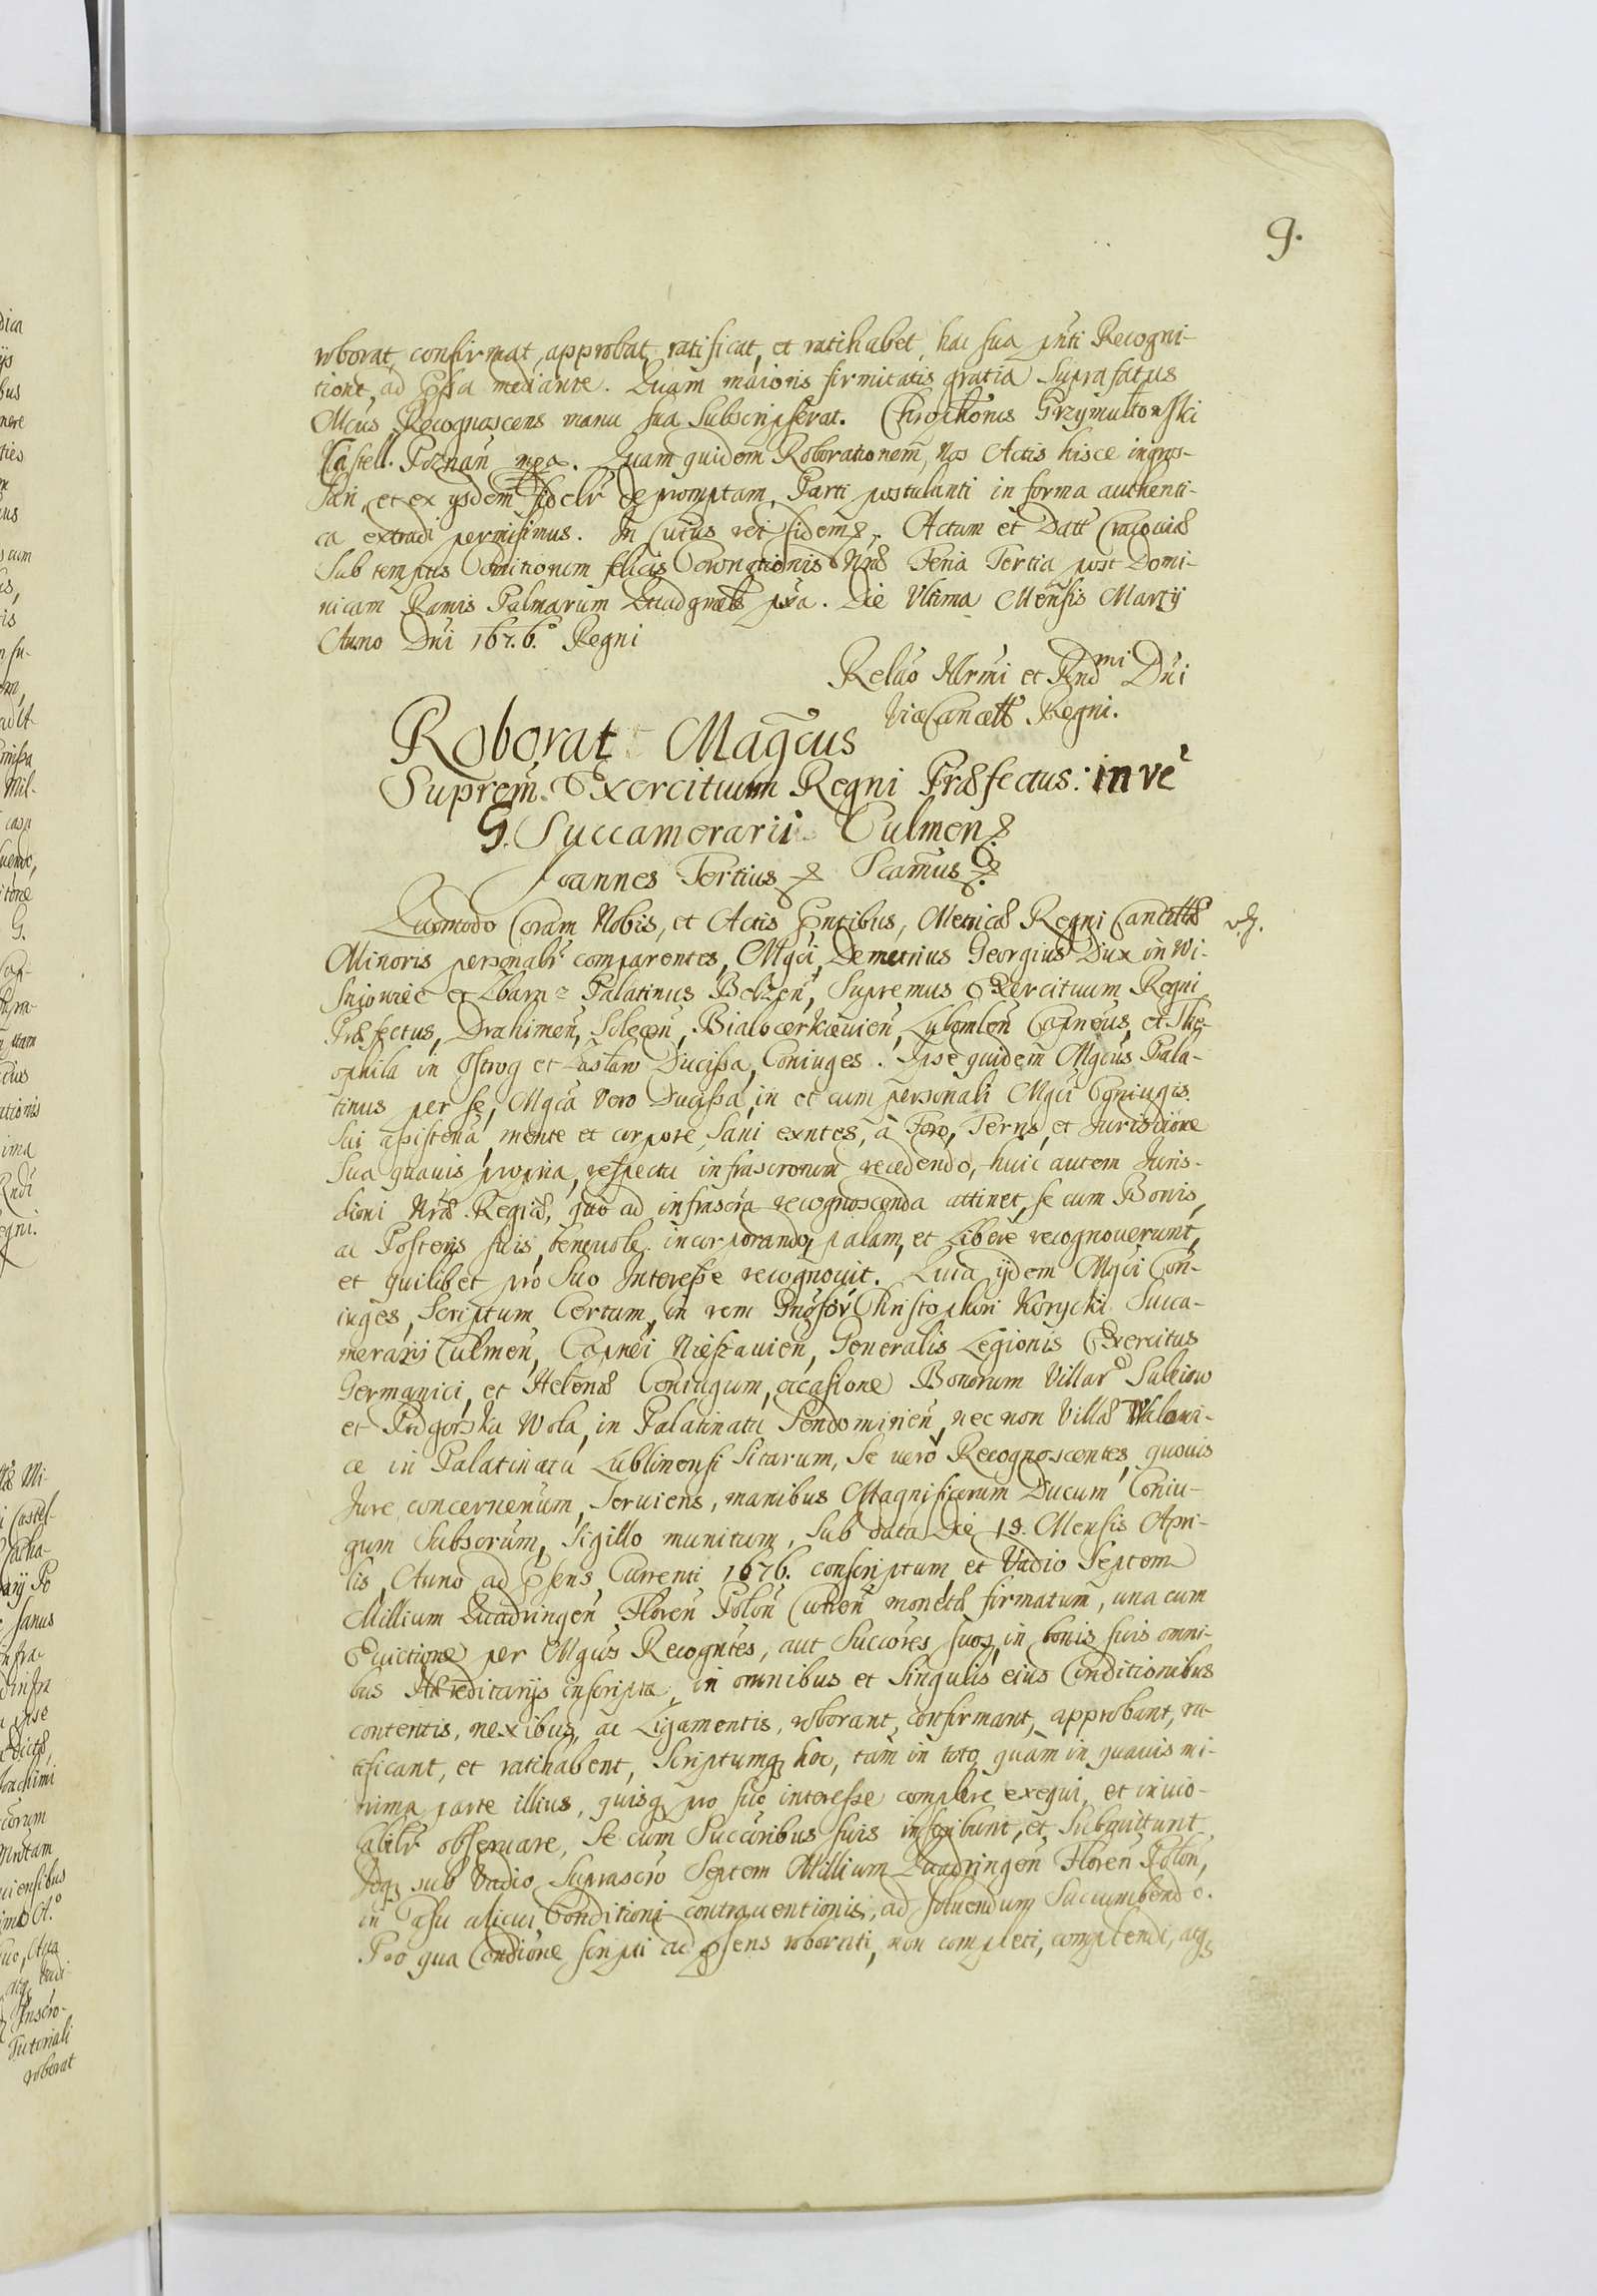 9.
roborat, confirmat, approbat, ratificat, et ratihabet, hac sua pnti Recogni-
tione, ad mediante. Quam maioris firmitatis gratia Suprafatus
Mcus Recognoscens manu sua Subscripserat. Grzymultowski
Castell. Poznan̄ mpa. Quam quidem Roborationem̄, Nos Actis hisce ingros-
sari, et ex ysdem fidelr̄ depromptam, Parti postulanti in forma authenti-
ca extradi permisimus. In Cuius rei fidem Actum et Datt Cracoviæ
Sub tempus felicis Coronationis Nræ Feria Tertia post Domi-
nicam Ramis Palmarum pxa. Die Ultima Mensis Martij
Anno Dni 1676. Regni
Relão Illrmi et Rnd mi Dni
ViceCancell Regni.
Roborat Magcus
Suprem̄. Exercituum Regni Præfectus: in ve
G. Succamerarii Culmen
Joannes Tertius Scamus
Quomodo Coram Nobis, et Actis Pntibus, Metricæ Regni Cancellæ
Minoris personalr̄ comparentes, Mgci, Demetrius Georgius Dux in Wi-
sniowiec et Zbaraz Palatinus Belzen̄, Supremus Exercituum Regni
Præfectus, Drahimen̄, Solecen̄, Bialocerkievien̄, Lubomlen̄ Capneus, et The-
ophila in Ostrog et Zaslaw Ducissa, Coniuges. Ipse quidem̄ Mgcus Pala-
tinus per se, Mgca Vero Ducissa, in et cum personali Mgci Coniugis
Sui assistena, mente et corpore, Sani exntes, à Foro, Terris, et Jurisdione
Sua quavis propria, respectu infrascrorum recedendo, huic autem Juris-
dioni Nræ Regiæ, quò ad infrascra recognoscenda attinet, se cum Bonis,
ac Posteris suis, benevole incorporando, palam, et Liberè recognoverunt,
et quilibet pro Suo Interesse recognovit. Quia ijdem Mgci Con-
iuges, Scriptum Certum, in rem Gnosor̄ Christophori Korycki Succa-
merarij Culmen̄, Capnei Nieszavien̄, Generalis Legionis Exercitus
Germanici, et Helenæ Coniugum, occasione Bonorum Villar̄ Sulciow
et Podgorska Wola, in Palatinatu Sendomirien̄, nec non Villæ
ce in Palatinatu Lublinensi Sitarum, Se verò Recognoscentes, quovis
Jure concernenum, Serviens, manibus Magnificorum Ducum Coniu-
gum Subscrum, Sigillo munitum, Sub data Die 19. Mensis Apri-
lis, Anno ad psens Currenti 1676. conscriptum, et Vadio Septem
Millium Quadringen̄ Floren̄ Polon̄ Curren̄ monetæ firmatum, una cum
Evictione per Mgcos Recogntes, aut Succores suos, in bonis suis omni-
bus Hæreditarijs inscripta, in omnibus et Singulis, eius Conditionibus
contentis, nexibus, ac Ligamentis, roborant, confirmant, approbant, ra-
tificant, et ratihabent, Scriptumq hoc, tam in toto, quàm in quavis mi-
nima parte illius, quisq pro suo interesse complere exequi, et invio-
labilr̄ observare, Se cum Succoribus suis inscribunt, et Submittunt
Idq sub Vadio Suprascro Septem Millium Quadringen̄ Floren̄ Polon̄,
in Casu alicui Conditioni contraventionis, ad solvendum Succumbendo.
Pro qua Condione scripti ad psens roborati, non completi, complendi, atq